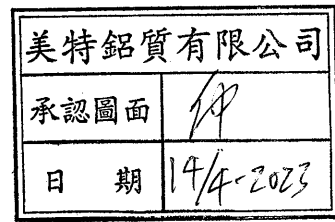 美特鋁質有限公司
承認圖面 仲
日 期 14/4-2023